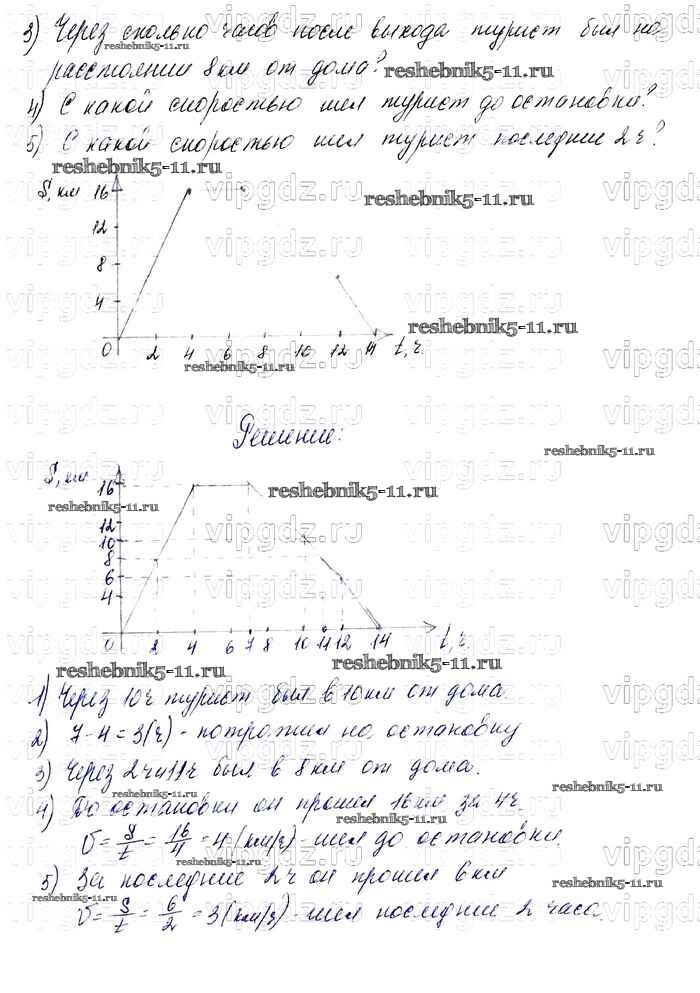 3) Через сколько часов после выхода турист был на
расстоянии 8км от дома?
4) С какой скоростью шел турист до остановки?
5) С какой скоростью шел турист последние 2ч?
S, км
16
12
8
4
0 2 4 6 8 10 12 14 t, ч.
Решение:
S, км
16
12
10
8
6
4
0 2 4 6 7 8 10 11 12 14 t, ч.
1) Через 10ч турист был в 10км от дома.
2) 7-4=3(ч) - потратил на остановку
3) Через 2ч и 11ч был в 8км от дома.
4) До остановки он прошел 16км за 4ч.
V = S/t = 16/4 = 4 (км/ч) - шел до остановки.
5) За последние 2ч он прошел 6км
V = S/t = 6/2 = 3(км/ч) - шел последние 2 часа.
reshebnik5-11.ru
vipgdz.ru